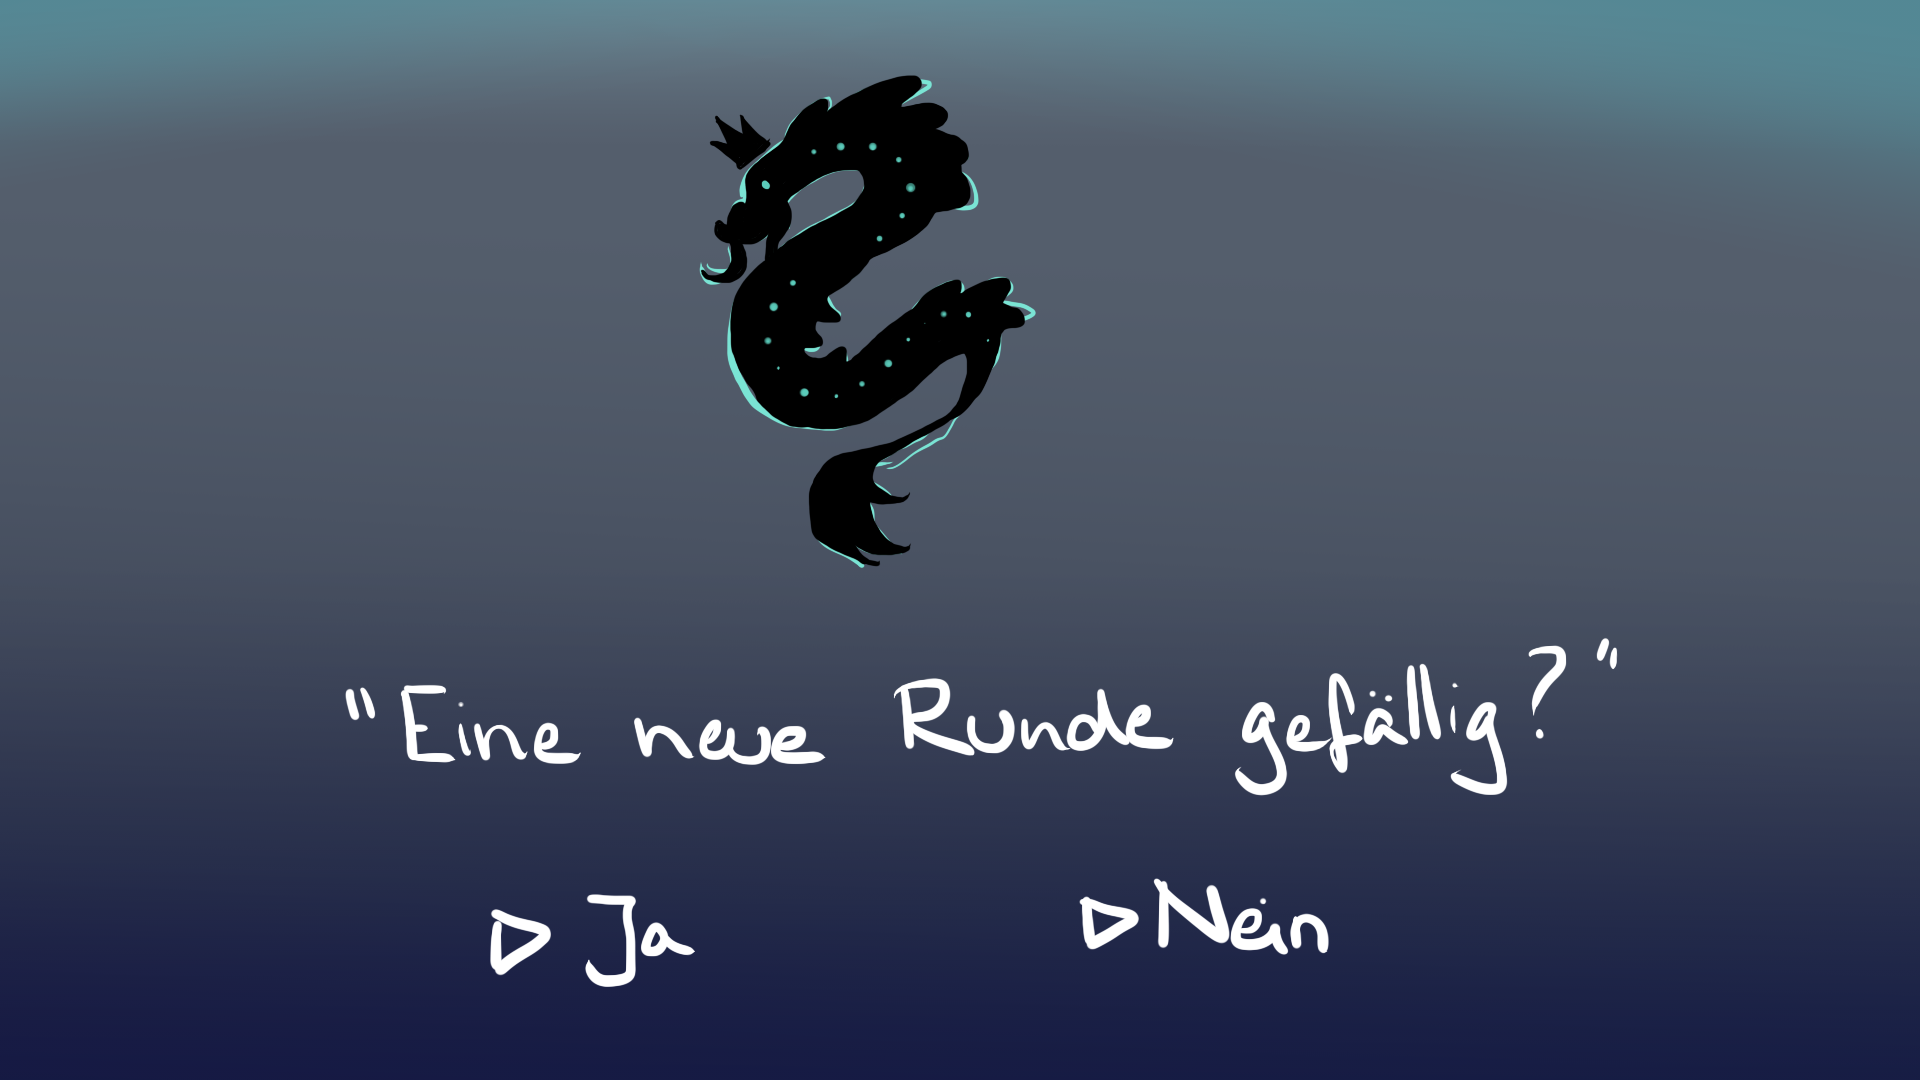 "Eine neue Runde gefällig?"
▷ Ja ▷ Nein